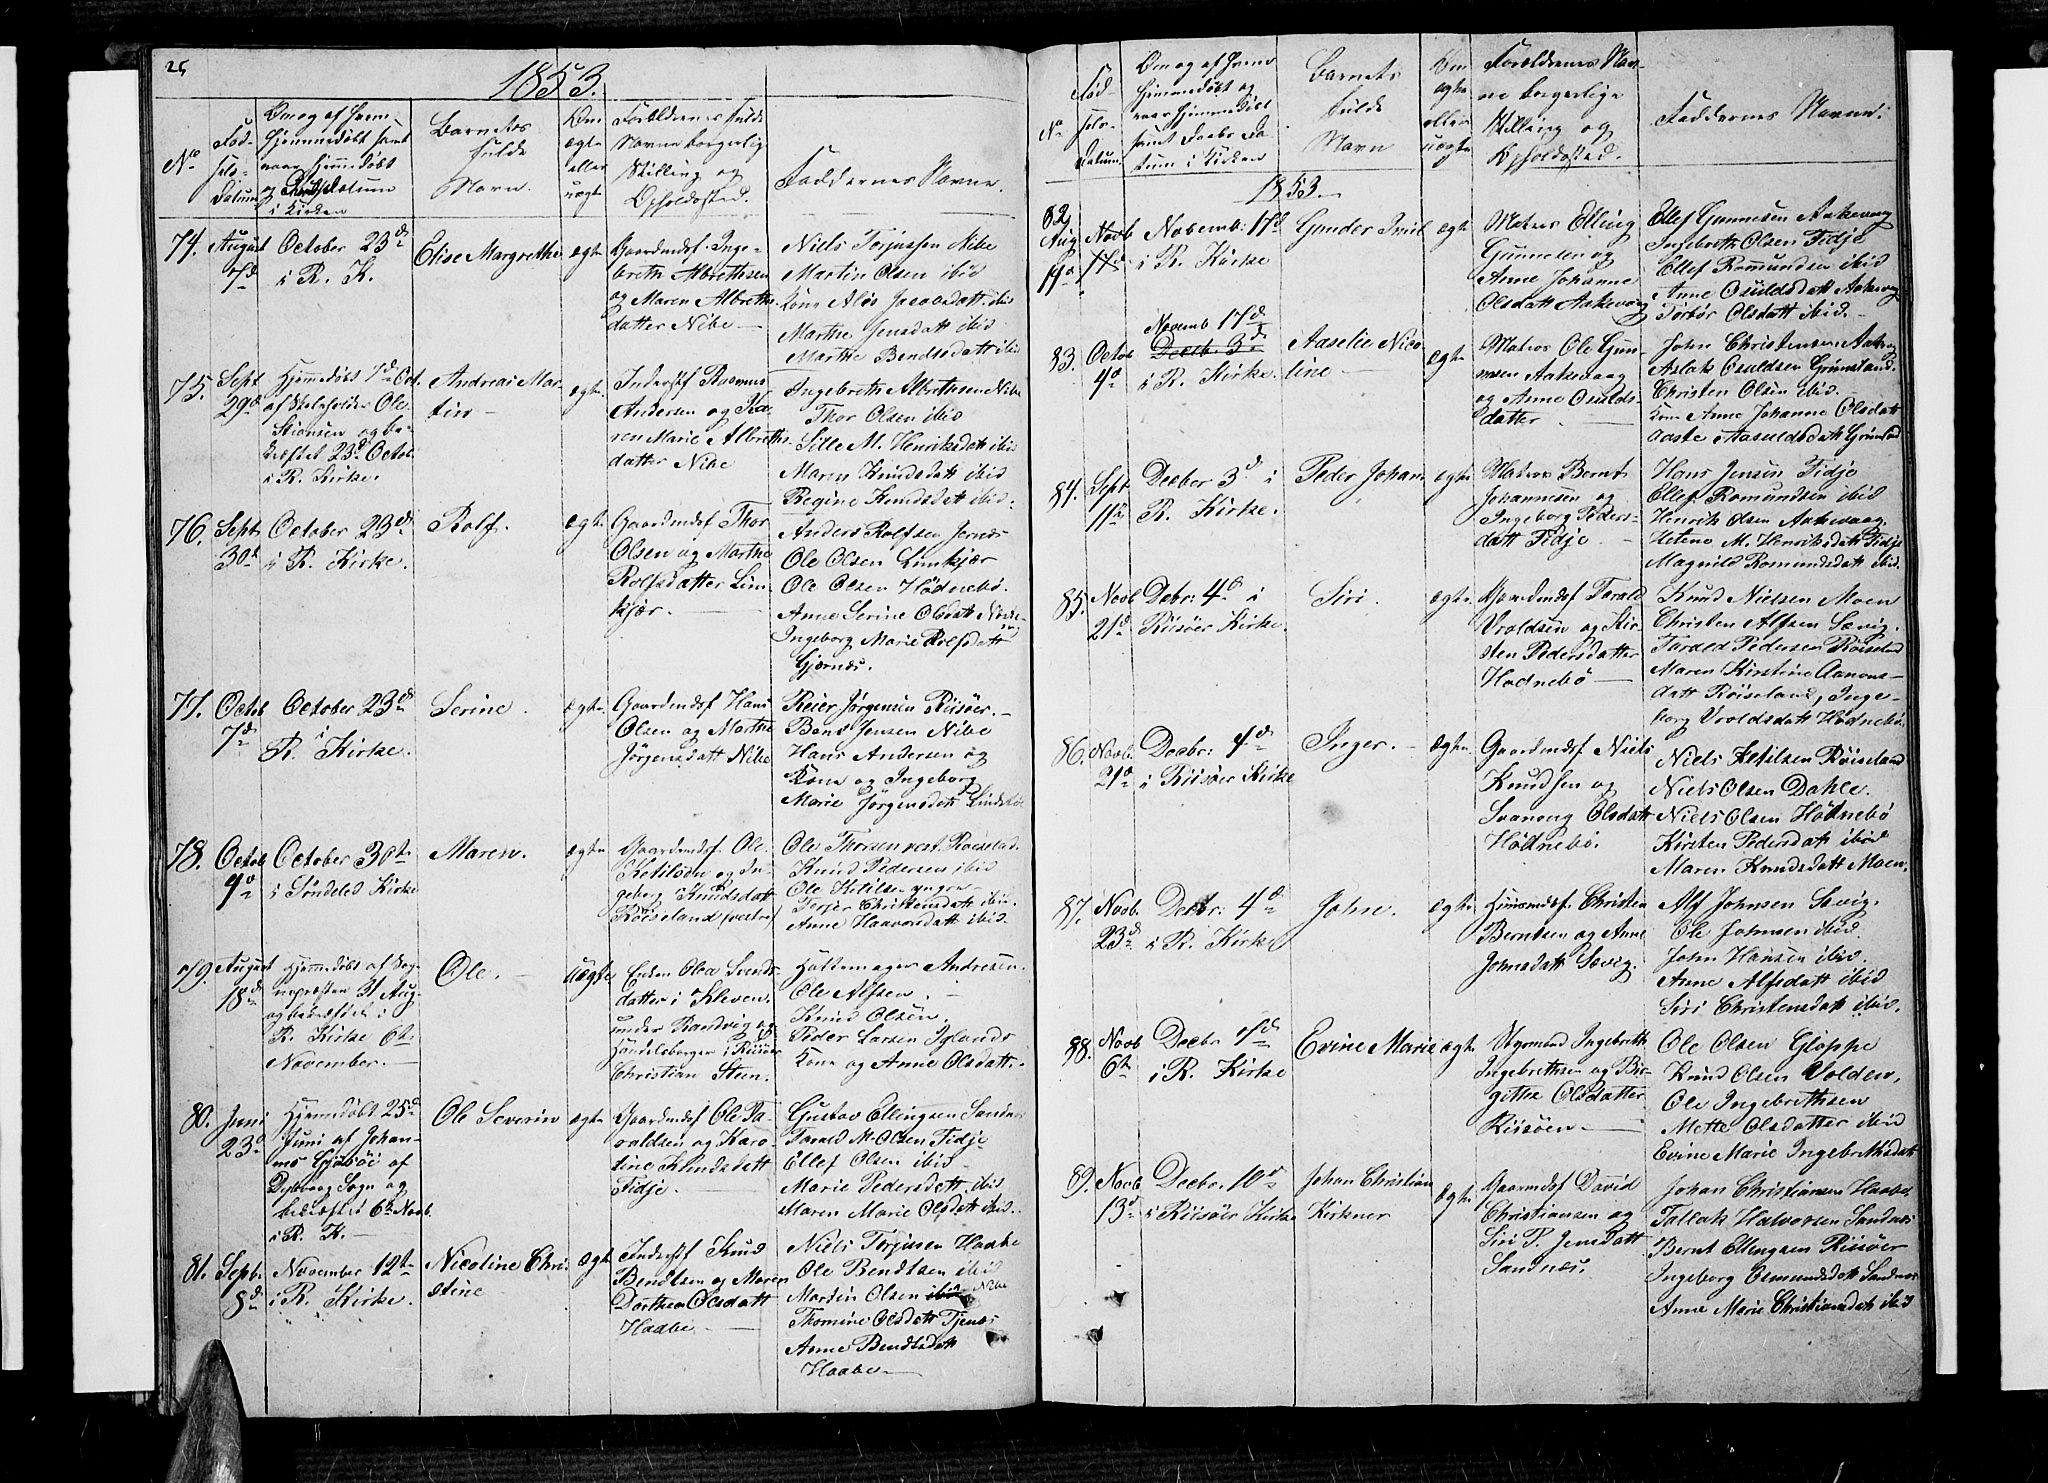 25
1853.
No
Fød-
sels-
Datum
Om og af hvem
Hjemmedøbt samt
naar hjemmedøbt
og Datum
i Kirken
Barnets
fulde
Navn.
Om
ægte
eller
uægte
Forældrenes fulde
Navne borgerlig
Stilling og
Opholdssted.
Faddernes Navne.
74.
August
7d
October 23d
i R. K.
Elise Margrethe
ægte
Gaardmdsf. Inge-
breth Albrethsen
og Maren Albreths-
datter Nibe —
Niels Torjussen Nibe
Martin Olsen ibid
Kone Alis Jacobsdatt. ibid
Marthe Jensdatt ibid
Marthe Bendsdatt ibid
75.
Sept
29d
Hjemmedøbt 7d Oct.
af Skoleholder Ole
Stiansen og be-
kræftet 23d Octob.
i R. Kirke.
Andreas Mar-
tin —
ægte
Inderstf Rasmus
Andersen og Ka-
ren Marie Albreths
datter Nibe
Ingebreth Albrethsen Nibe
Thor Olsen ibid
Sille M. Henriksdatt ibid
Maren Knudsdatt ibid
Regine Knudsdatt ibid.
76.
Sept.
30t
October 23d
i R. Kirke.
Rolf.
ægte
Gaardmdsf Thor
Olsen og Marthe
Rolfsdatter Lim-
kjær. —
Anders Rolfsen Jernæs
Ole Olsen Limkjær
Ole Olsen Hødnebø.
Anne Serine Olsdatt
Ingeborg Marie Rolfsdatt
Gjernæs.
77.
Octob
7d
October 23d
i
R. Kirke.
Serine.
ægte
Gaardmdsf Hans
Olsen og Marthe
Jörgensdatt Nibe
Reier Jørgensen Riisöer.
Bent Jensen Nibe
Hans Andersen og
Kone og Ingeborg
Marie Jørgensdatt Lindstøl
78.
Octob
9d
October 30te
i Søndeled Kirke
Maren.
ægte
Gaardmdsf. Ole
Ketilsen og In-
geborg Knudsdatt
Röiseland (vestre)
Ole Thorsen vest. Røiseland
Knud Pedersen ibid
Ole Ketilsen yngre
Terjer Christensdatt ibid
Anne Haavorsdatt ibid.
79.
August
18d
Hjemmedøbt af Sog-
nepræsten 31 Aug.
og bekræftet i
R. Kirke 6te
November. —
Ole. —
uægte
Enken Olea Svends-
datter i Kleven
under Randvig og
Handelsborger i Riisöer
Christian Steen.
Hattemager Andresen.
Ole Alfsen. —
Knud Olsen.
Peder Larsen Iglands
Kone og Anne Olsdatt. —
80.
Juni
23d
Hjemmedöbt 25d
Juni af Johan-
nes Gjøsøi af
Dybvaag Sogn og
bekræftet 6te Novb.
i R. K. —
Ole Severin
ægte
Gaardmdsf Ole Ta-
raldsen og Karo-
line Knudsdatt
Fidje. —
Gustav Ellingsen Sandnæs
Tarald M. Olsen Fidje
Ellef Olsen ibid
Marie Pedersdatt ibid
Maren Marie Olsdatt ibid.
81.
Septr.
8d
November 12te
i R. Kirke.
Nicoline Chri-
stine
ægte
Inderstf Knud
Bendtsen og Maren
Dorthea Olsdatt
Haabe —
Niels Torjusen Haabe
Ole Bendtsen ibid
Martin Olsen ibid Nibe
Thomine Olsdatt Tjenæs
Anne Bendtsdatt
Haabe —
No
Fød-
sels-
Datum
Om og af hvem
hjemmedøbt og
naar hjemmedøbt
samt Daabs Da-
tum i Kirken
Barnets
fulde
Navn
Om
ægte
eller
uægte
Forældrenes Nav-
ne borgerlige
Stilling og
Opholdssted.
Faddernes Navne:
1853.
82
Aug
11te
Novb
17d
Novemb: 17d
i R. Kirke
Gunder Emil
ægte
Matros Elling
Gunnesen og
Anne Johanne
Olsdatt Aakevaag
Ellef Gunnesen Aakevaag
Ingebreth Olsen Fidje
Ellef Romundsen ibid
Anne Osuldsdatt Aakevaag
Torbør Olsdatt ibid. —
83.
Octob
4d
Novemb 17d
Decbr. 3d
i R. Kirke.
Aaselie Nico-
line —
ægte
Matros Ole Gun-
nesen Aakevaag
og Anne Osulds-
datter —
John Christensen Aakvaag
Aslak Osuldsen Grimsland
Christen Olsen ibid.
Kone Anne Johanne Olsdatt
Aaste Aasuldsdatt Grimsland
84.
Sept
11te
Decber 3d i
R. Kirke.
Peder Johan
ægte
Matros Bernt
Johannesen og
Ingeborg Peders-
datt Fidje. —
Hans Jensen Fidje
Ellef Romundsen ibid
Henrik Olsen Aakevaag.
Helene M. Henriksdatt Fidje
Magnild Romundsdatt ibid.
85.
Novb
21d
Decbr: 4d i
Riisöer Kirke.
Siri.
ægte
Gaardmdsf Tarald
Vroldsen og Kir-
sten Pedersdatter
Hødnebø —
Knud Nielsen Moen
Christen Alfsen Sævig.
Tarald Pedersen Röiseland
Maren Kirstine Aanons-
datt Röiseland, Inge-
borg Vroldsdatt Hødnebø.
86.
Novb.
21d
Decbr: 4d
i Riisöer Kirke
Inger. —
ægte
Gaardmdsf Niels
Knudsen og
Svanaug Olsdatt
Hødnebø.
Niels Ketilsen Røiseland
Niels Olsen Dahle.
Niels Olsen Hödnebö
Kirsten Pedersdatt ibid
Maren Knudsdatt Moen.
87.
Novb.
23d
Decbr: 4d
i R. Kirke
John.
ægte
Huusmdsf. Christen
Berntsen og Anne
Johnsdatt Sævig.
Alf Johnsen Sævig.
Ole Johnsen ibid.
John Hansen ibid.
Anne Alfsdatt ibid
Siri Christensdatt ibid.
88.
Novb
6te
Decbr 7d
i R. Kirke
Evine Marie
ægte
Ingebreth
Ingebrethsen og Bir-
gitte Olsdatter
Riisöen —
Ole Olsen Gloppe
Knud Olsen Volden,
Ole Ingebrethsen
Mette Olsdatter ibid
Evine Marie Ingebrethsdatt
89.
Novb
13d
Decbr. 10d
i Riisöer Kirke
Johan Christian
Kirkner
ægte
Gaardmdsf David
Christiansen og
Siri P. Jensdatt
Sandnæs.
Johan Christiansen Haabe.
Tallak Halvorsen Sandnæs
Bernt Ellingsen Riisöer
Ingeborg Osmundsdatt Sandnæs
Anne Marie Christiansdatt ibid